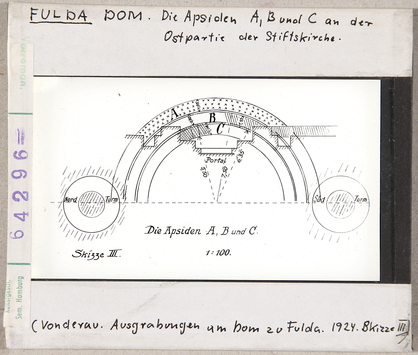 FULDA DOM. Die Apsiden A, B und C an der
Ostpartie der Stiftskirche.
A
B
C
Portal
Nord Turm
Süd Turm
Die Apsiden A, B und C.
Skizze III.
1:100.
64296=
Sem. Hamburg
(Vonderau. Ausgrabungen am Dom zu Fulda. 1924. Skizze III)